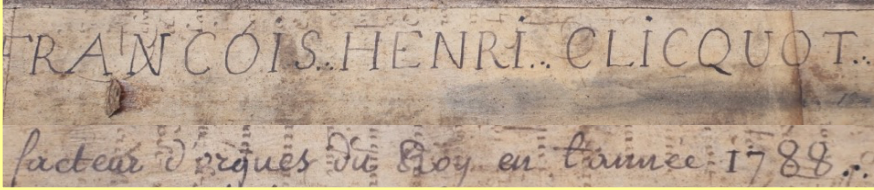 FRANCOIS..HENRI..CLICQUOT..
facteur d'orgues du Roy en l'annee 1788..